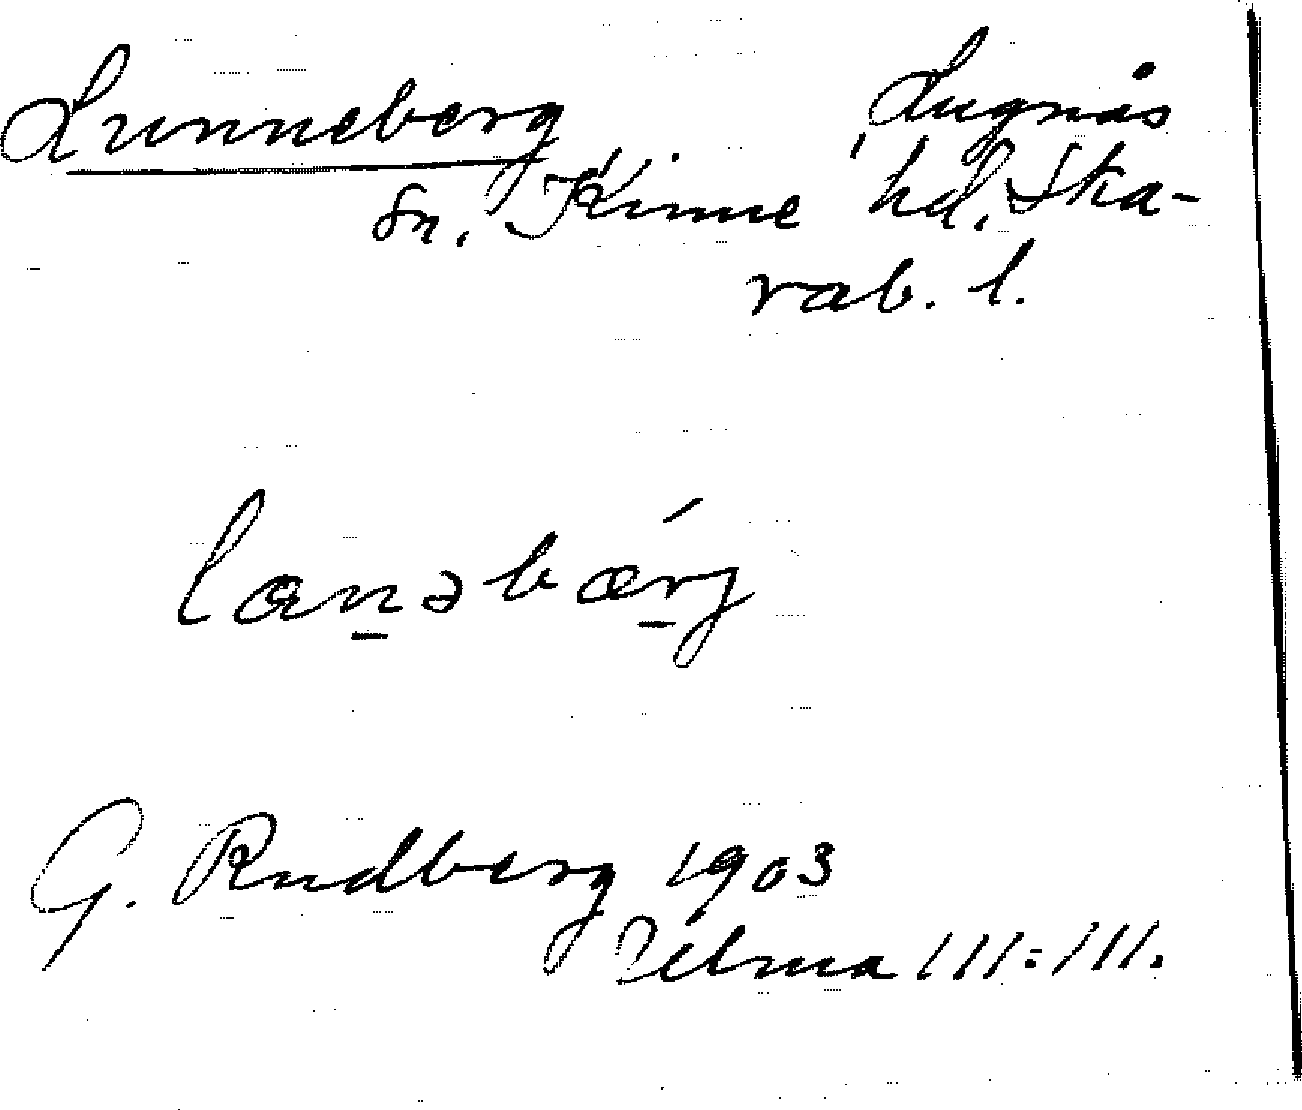 Lunneberg Lugnås
sn. Kinne hd. Ska-
rab. l.
lɷnəbǽrj
G. Rudberg 1903
III:III.